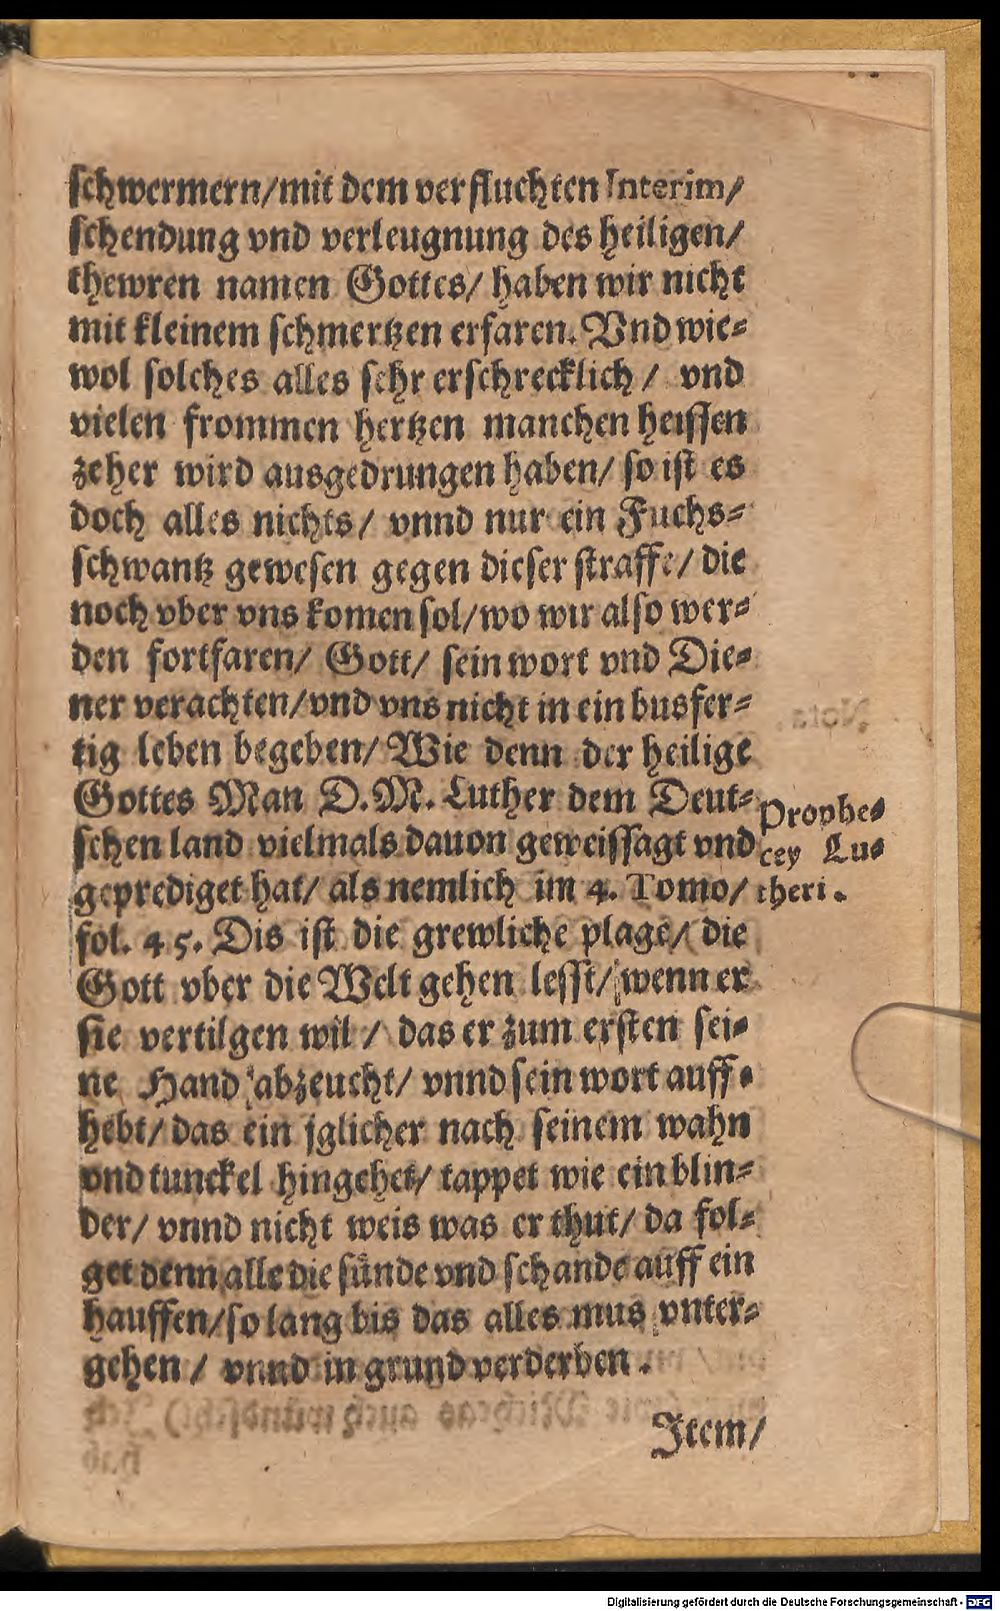 schwermern/mit dem verfluchten Interim/
schendung vnd verleugnung des heiligen/
thewren namen Gottes/ haben wir nicht
mit kleinem schmertzen erfaren. Vnd wie-
wol solches alles sehr erschrecklich/ vnd
vielen frommen hertzen manchen heissen
zeher wird ausgedrungen haben/ so ist es
doch alles nichts/ vnnd nur ein Fuchs-
schwantz gewesen gegen dieser straffe/ die
noch vber vns komen sol/wo wir also wer-
den fortfaren/ Gott/ sein wort vnd Die-
ner verachten/vnd vns nicht in ein busfer-
tig leben begeben/ Wie denn der heilige
Gottes Man D.M. Luther dem Deut-
schen land vielmals dauon geweissagt vnd
geprediget hat/ als nemlich im 4. Tomo/
fol. 45. Dis ist die grewliche plage/ die
Gott vber die Welt gehen lesst/ wenn er
sie vertilgen wil/ das er zum ersten sei-
ne Hand abzeucht/ vnnd sein wort auff-
hebt/ das ein jglicher nach seinem wahn
vnd tunckel hingehet/ tappet wie ein blin-
der/ vnnd nicht weis was er thut/ da fol-
get denn alle die sünde vnd schande auff ein
hauffen/so lang bis das alles mus vnter-
gehen/ vnnd in grund verderben.
Item/
Prophe-
cey Lu-
theri.
Digitalisierung gefördert durch die Deutsche Forschungsgemeinschaft - DFG